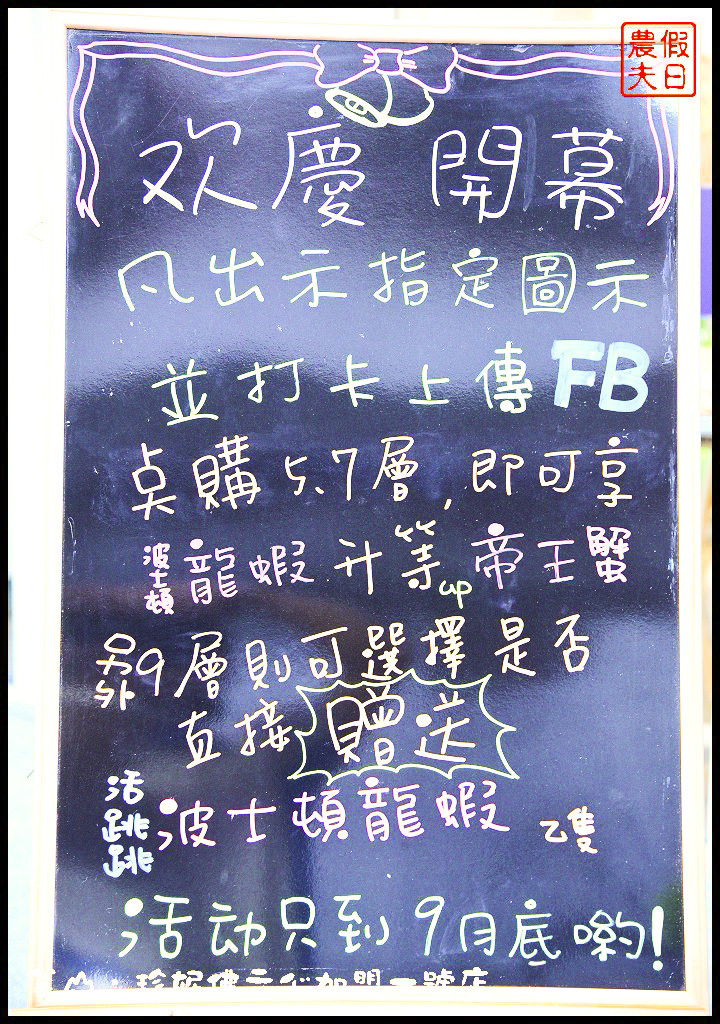 假日
農夫
欢慶 開幕
凡出示指定圖示
並打卡上傳FB
点購5.7層,即可享
波士頓龍蝦升等up帝王蟹
另外9層則可選擇是否
直接贈送
活跳跳波士頓龍蝦乙隻
活动只到9月底喲!